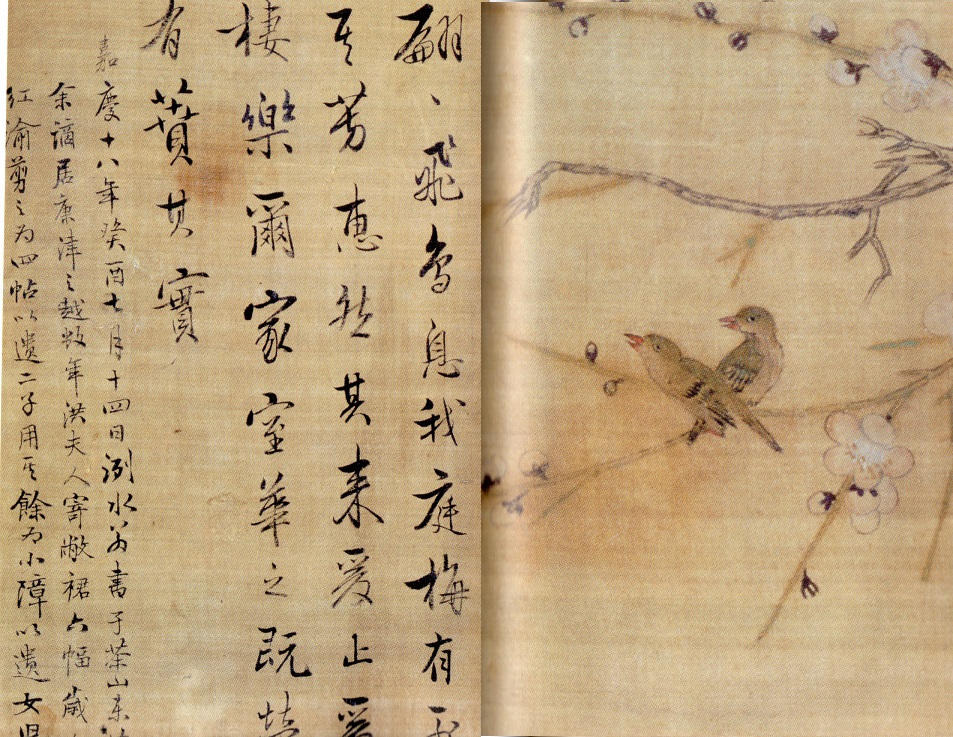 翩〻飛鳥息我庭梅有
其芳惠然其來爰止爰
棲樂爾家室華之既榮
有蕡其實
嘉慶十八年癸酉七月十四日洌水翁書于茶山東
余謫居康津之越數年洪夫人寄敝裙六幅歲
紅渝剪之為四帖以遺二子用其餘為小障以遺女兒